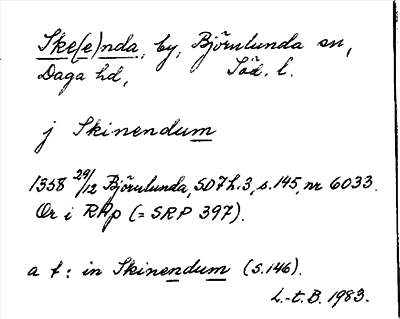 Ske(e)nda, by, Björnlunda sn,
Daga hd, Söd. l.
j Skinendum
1358 29/12 Björnlunda, SD 7 h. 3, s. 145, nr 6033.
Or i RAp (= SRP 397).
a t: in Skinendum (s. 146).
L.-t. B. 1983.